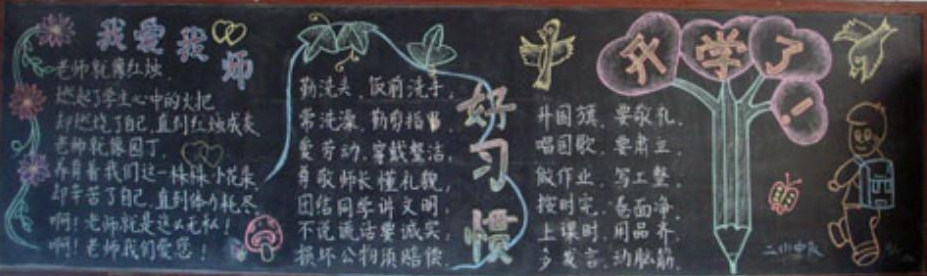 我爱我师
老师就像红烛,
燃起了学生心中的火把
却燃烧了自己,直到红烛成灰
老师就像园丁,
养育着我们这一株株小花朵
却辛苦了自己,直到体力耗尽
啊!老师就是这么无私!
啊!老师我们爱您!
好习惯
勤洗头、饭前洗手,
常洗澡,勤剪指甲,
爱劳动,穿戴整洁,
尊敬师长懂礼貌,
团结同学讲文明,
不说谎话要诚实,
损坏公物须赔偿.
升学了!
升国旗,要敬礼,
唱国歌,要肃立,
做作业,写工整,
按时完,卷面净,
上课时,用品齐,
多发言,动脑筋.